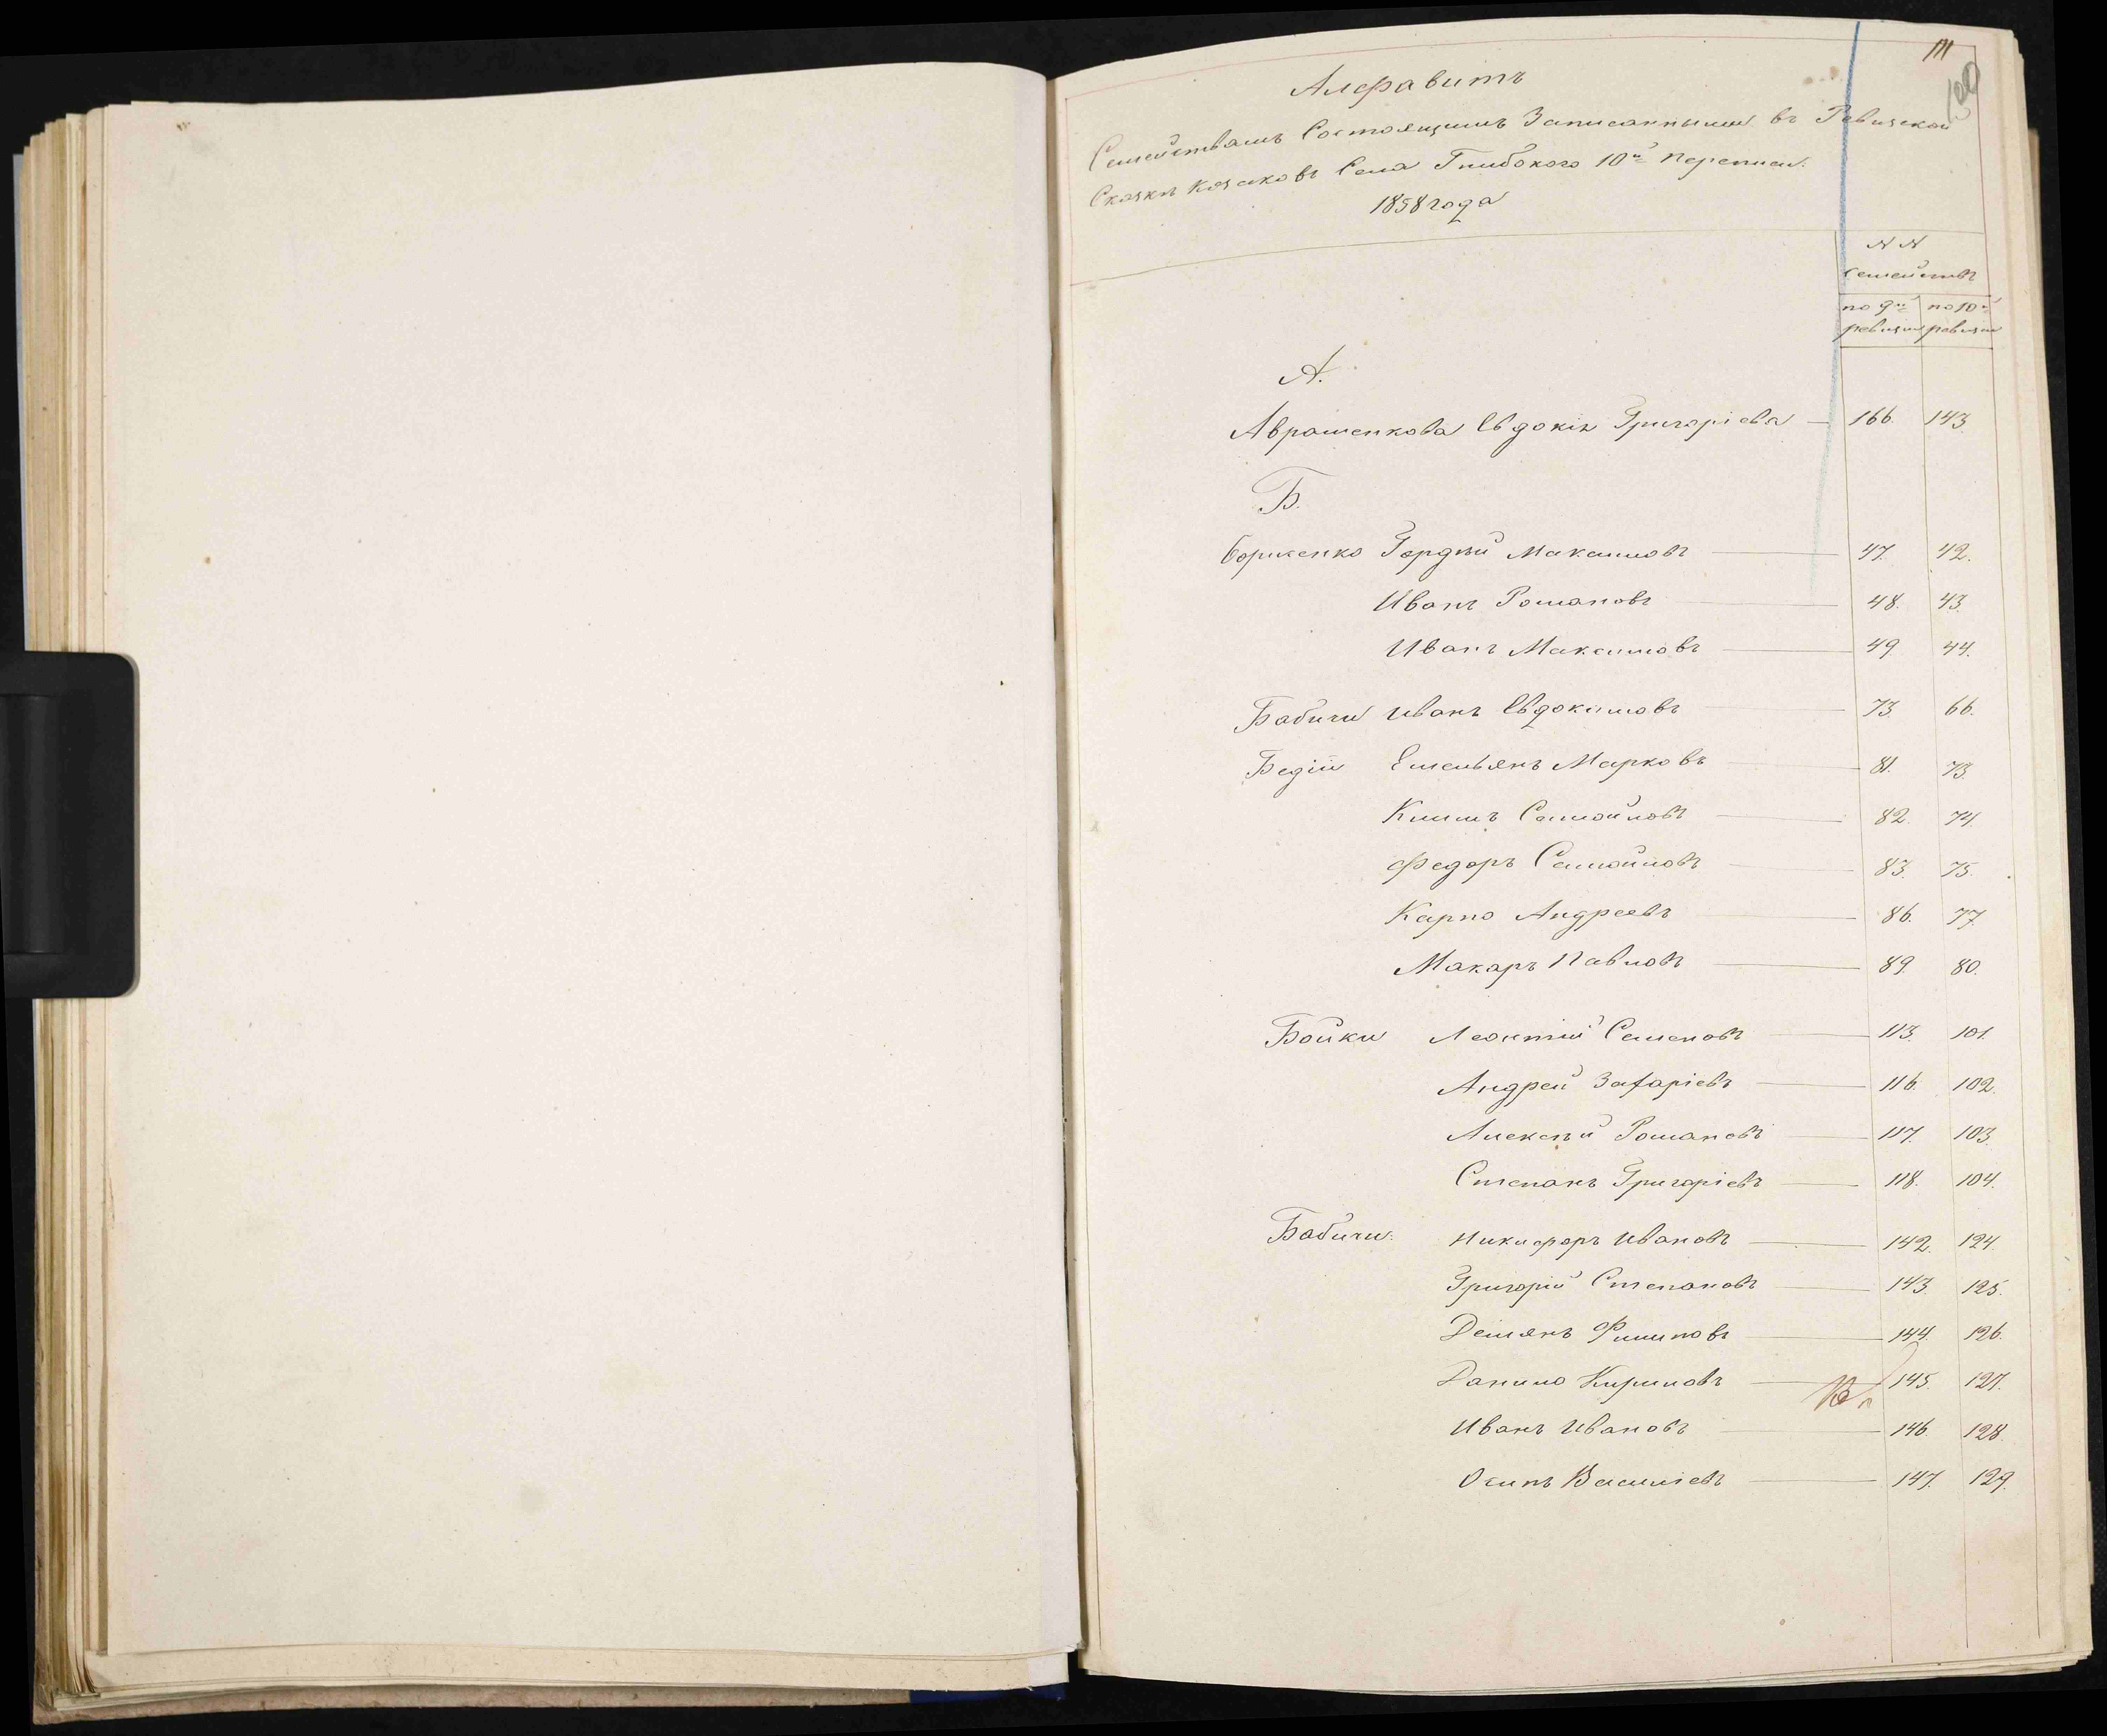 111
100
Алфавитъ
Семействамъ Состоящимъ Записанными въ Ревизской
Сказкѣ Козаковъ Села Глибокого 10й Переписи.
1858 года
N N
семействъ
по 9й по 10й
ревизіи ревизіи
А.
Аврашенкова Евдокія Григоріева 166. 143.
Б.
Гордѣй Максимовъ 47. 42.
Иванъ Романовъ 48. 43.
Иванъ Максимовъ 49 44.
Бабичи Иванъ Евдокимовъ 73 66.
Бедіи Емельянъ Марковъ 81. 73.
Климъ Самойловъ 82. 74.
Федоръ Самойловъ 83. 75.
Карпо Андреевъ 86. 77.
Макаръ Павловъ 89. 80.
Бойки Леонтій Семеновъ 113. 101.
Андрей Захаріевъ 116. 102.
Алексѣй Романовъ 117. 103.
Степанъ Григоріевъ 118. 104.
Бабичи. Никифоръ Ивановъ 142. 124.
Григорій Степановъ 143. 125.
Демянъ Филиповъ 144. 126.
Данило Кириловъ 145. 127.
Иванъ Ивановъ 146. 128.
Осипъ Василіевъ 147. 129.